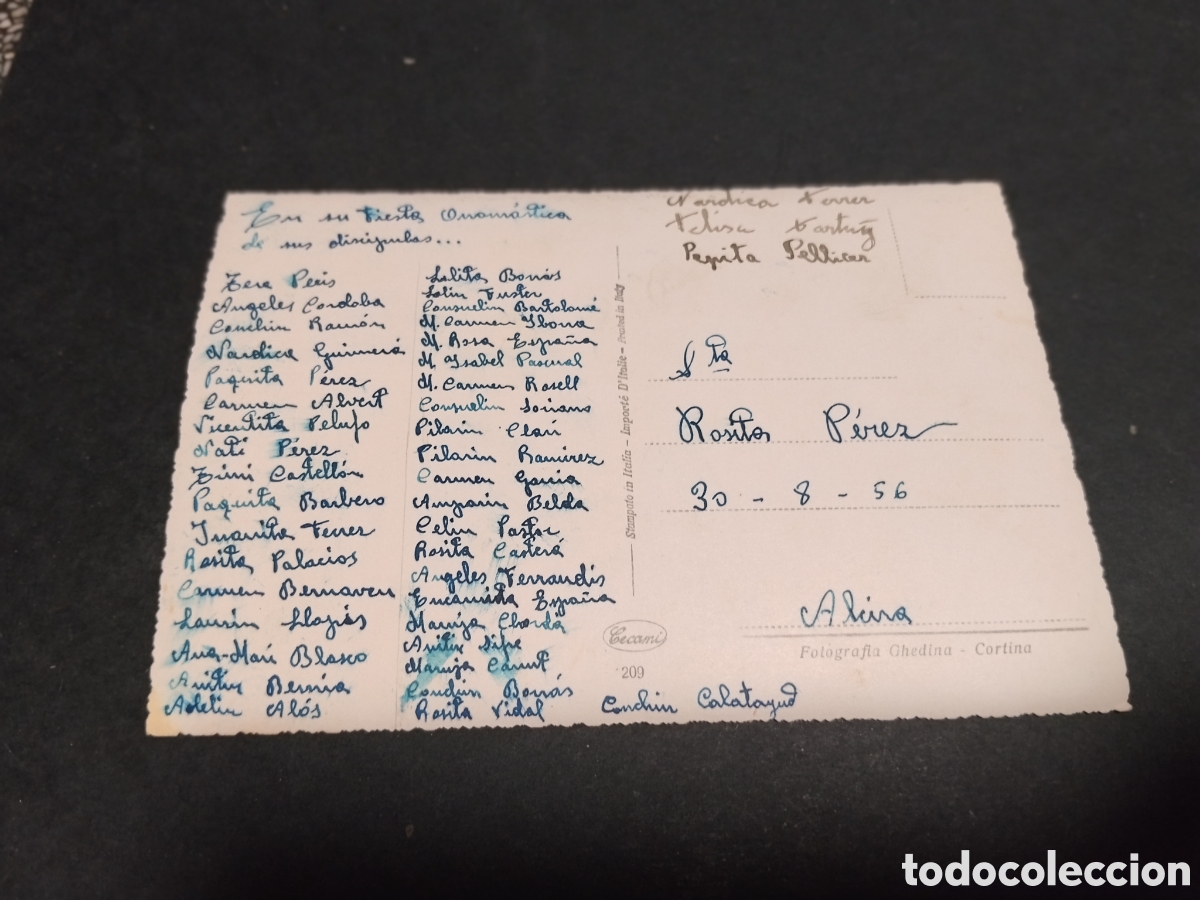 En su Fiesta Onomástica
de sus discípulas...
Tere Peris
Angeles Cordoba
Conchin Ramón
Nardica Guimerá
Paquita Pérez
Carmen Alvert
Vicentita Pelufo
Nati Pérez
Fini Castellón
Paquita Barbero
Juanita Ferrer
Rosita Palacios
Carmen Bernaveu
Laurin Llopis
Ana-Mari Blasco
Anitin Bernia
Adelin Alós
Lolita Borrás
Lolin Fuster
Consuelin Bartolomé
M. Carmen Iborra
M. Rosa España
M. Isabel Pascual
M. Carmen Rosell
Consuelin Soriano
Pilarin Clari
Pilarin Ramirez
Carmen Garcia
Amparin Belda
Celin Pastor
Rosita Casterá
Angeles Ferrandis
Encarnita España
Maruja Chordá
Anitin Sifre
Maruja Canut
Conchin Borrás
Rosita Vidal
Conchin Calatayud
Nardica Ferrer
Felisa
Pepita Pellicer
Stampato in Italia - Importé D'Italie - Printed in Italy
Sta
Rosita Pérez
30 - 8 - 56
Alcira
Cecami
209
Fotografia Ghedina - Cortina
todocoleccion